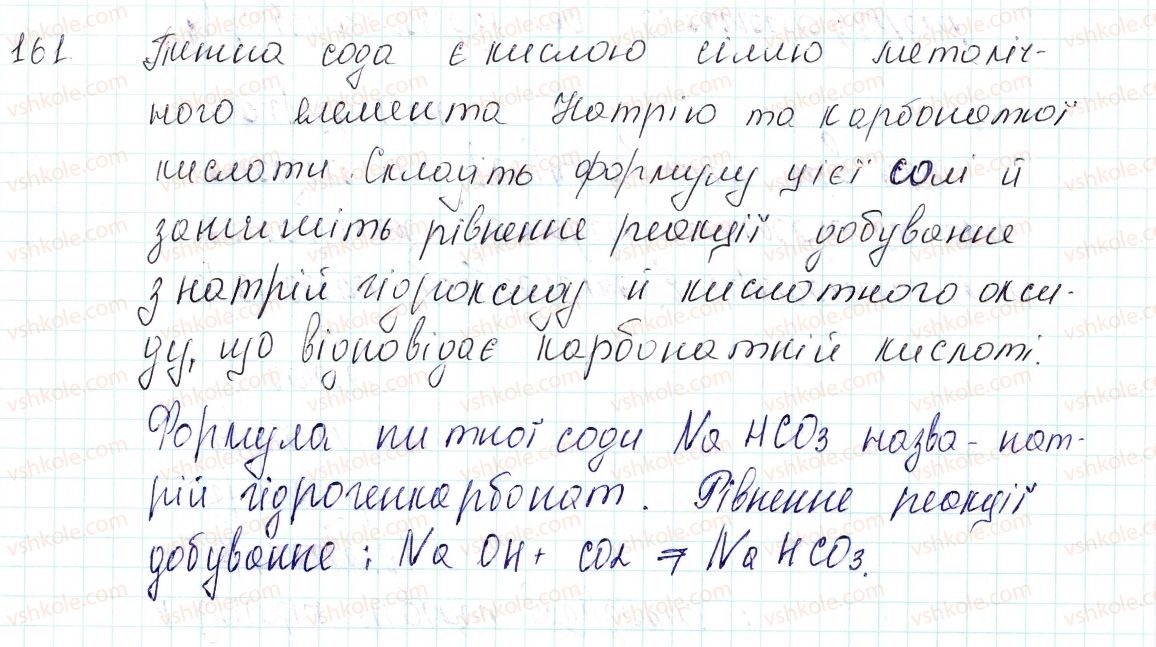 161. Питна сода є кислою сіллю металіч-
ного елемента Натрію та карбонатної
кислоти. Складіть формулу цієї солі й
запишіть рівняння реакції добування
з натрій гідроксиду й кислотного окси-
ду, що відповідає карбонатній кислоті.
Формула питної соди NaHCO3 назва - нат-
рій гідрогенкарбонат. Рівняння реакції
добування: NaOH + CO2 = NaHCO3.